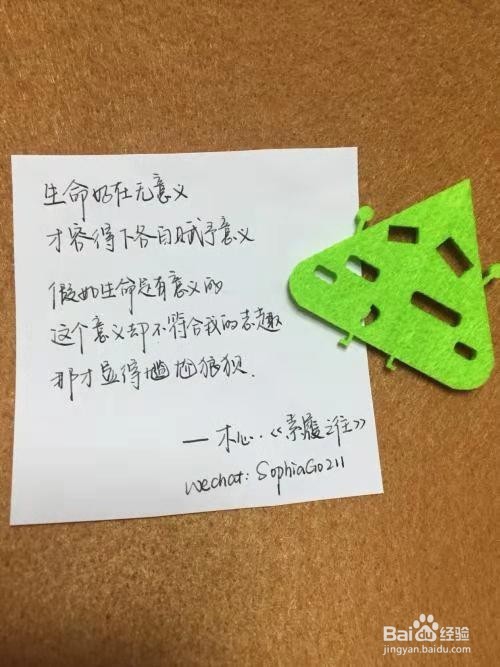 生命好在无意义
才容得下各自赋予意义
假如生命是有意义的
这个意义却不符合我的志趣
那才显得尴尬狼狈.
— 木心.《素履之往》
wechat: SophiaGo211
Bai du 经验
jingyan.baidu.com